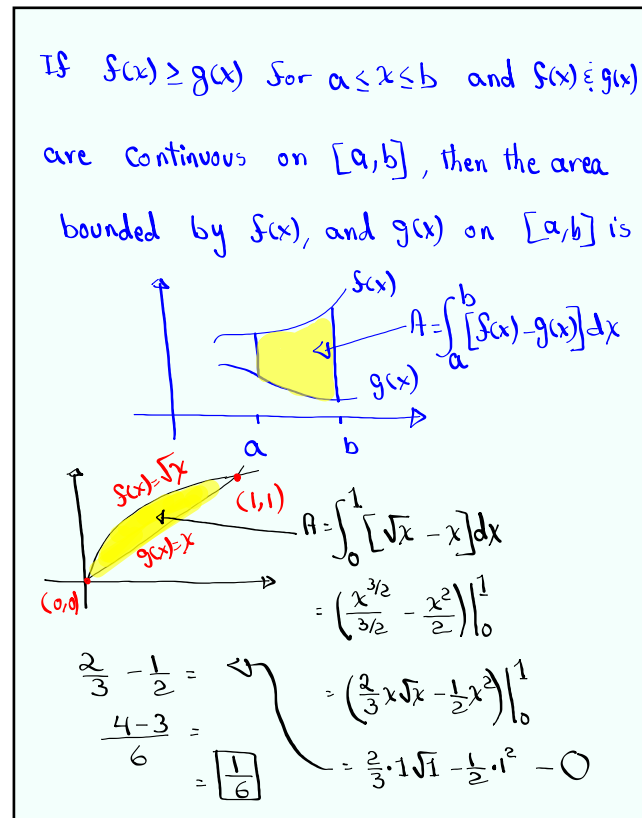 If f(x) ≥ g(x) for a ≤ x ≤ b and f(x) & g(x)
are continuous on [a,b], then the area
bounded by f(x), and g(x) on [a,b] is
f(x)
A = ∫_a^b [f(x) - g(x)] dx
g(x)
a b
f(x)=√x
(1,1)
g(x)=x
(0,0)
A = ∫_0^1 [√x - x] dx
= (x^{3/2}/(3/2) - x^2/2)|_0^1
= (2/3 x√x - 1/2 x^2)|_0^1
= 2/3 · 1√1 - 1/2 · 1^2 - 0
2/3 - 1/2 =
(4-3)/6 =
= 1/6